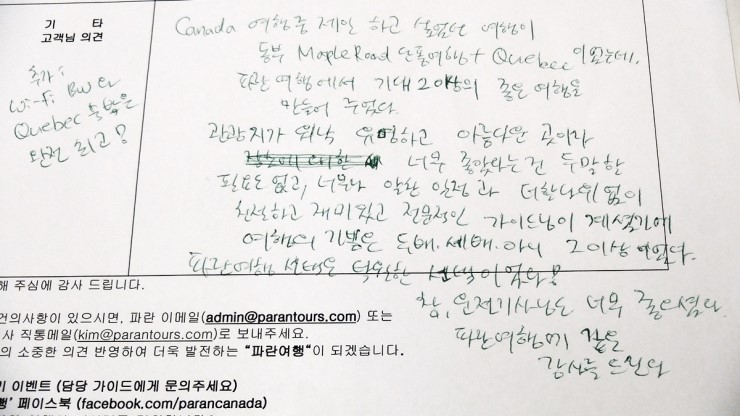 기 타
고객님 의견
추가:
Wi-Fi BUS 와
Quebec 숙박은
완전 최고!
Canada 여행 중 제일 하고 싶었던 여행이
동부 Maple Road 단풍여행 + Quebec 이었는데,
파란여행에서 기대 그 이상의 좋은 여행을
만들어 주었다.
관광지가 워낙 유명하고 아름다운 곳이라
너무 좋았다는 건 두말할
필요도 없고, 너무나 알찬 일정과 더할나위 없이
친절하고 재미있고 전문적인 가이드님이 계셨기에
여행의 기쁨은 두배. 세배. 아니 그 이상 이었다.
파란여행 선택은 탁월한 선택이었다!
참, 운전기사님도 너무 좋으셨다.
파란여행에 깊은
감사를 드린다
해 주심에 감사 드립니다.
건의사항이 있으시면, 파란 이메일(admin@parantours.com) 또는
사 직통메일(kim@parantours.com)로 보내주세요.
의 소중한 의견 반영하여 더욱 발전하는 "파란여행"이 되겠습니다.
기 이벤트 (담당 가이드에게 문의주세요)
행' 페이스북 (facebook.com/parancanada)